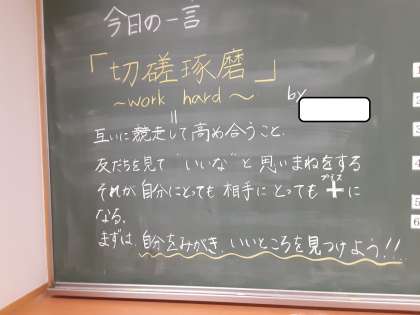 今日の一言
「切磋琢磨」
~work hard~ by
=
互いに競走して高め合うこと.
友だちを見て"いいな"と思いまねをする
それが自分にとっても相手にとっても+プラスに
なる.
まずは、自分をみがき、いいところを見つけよう!!